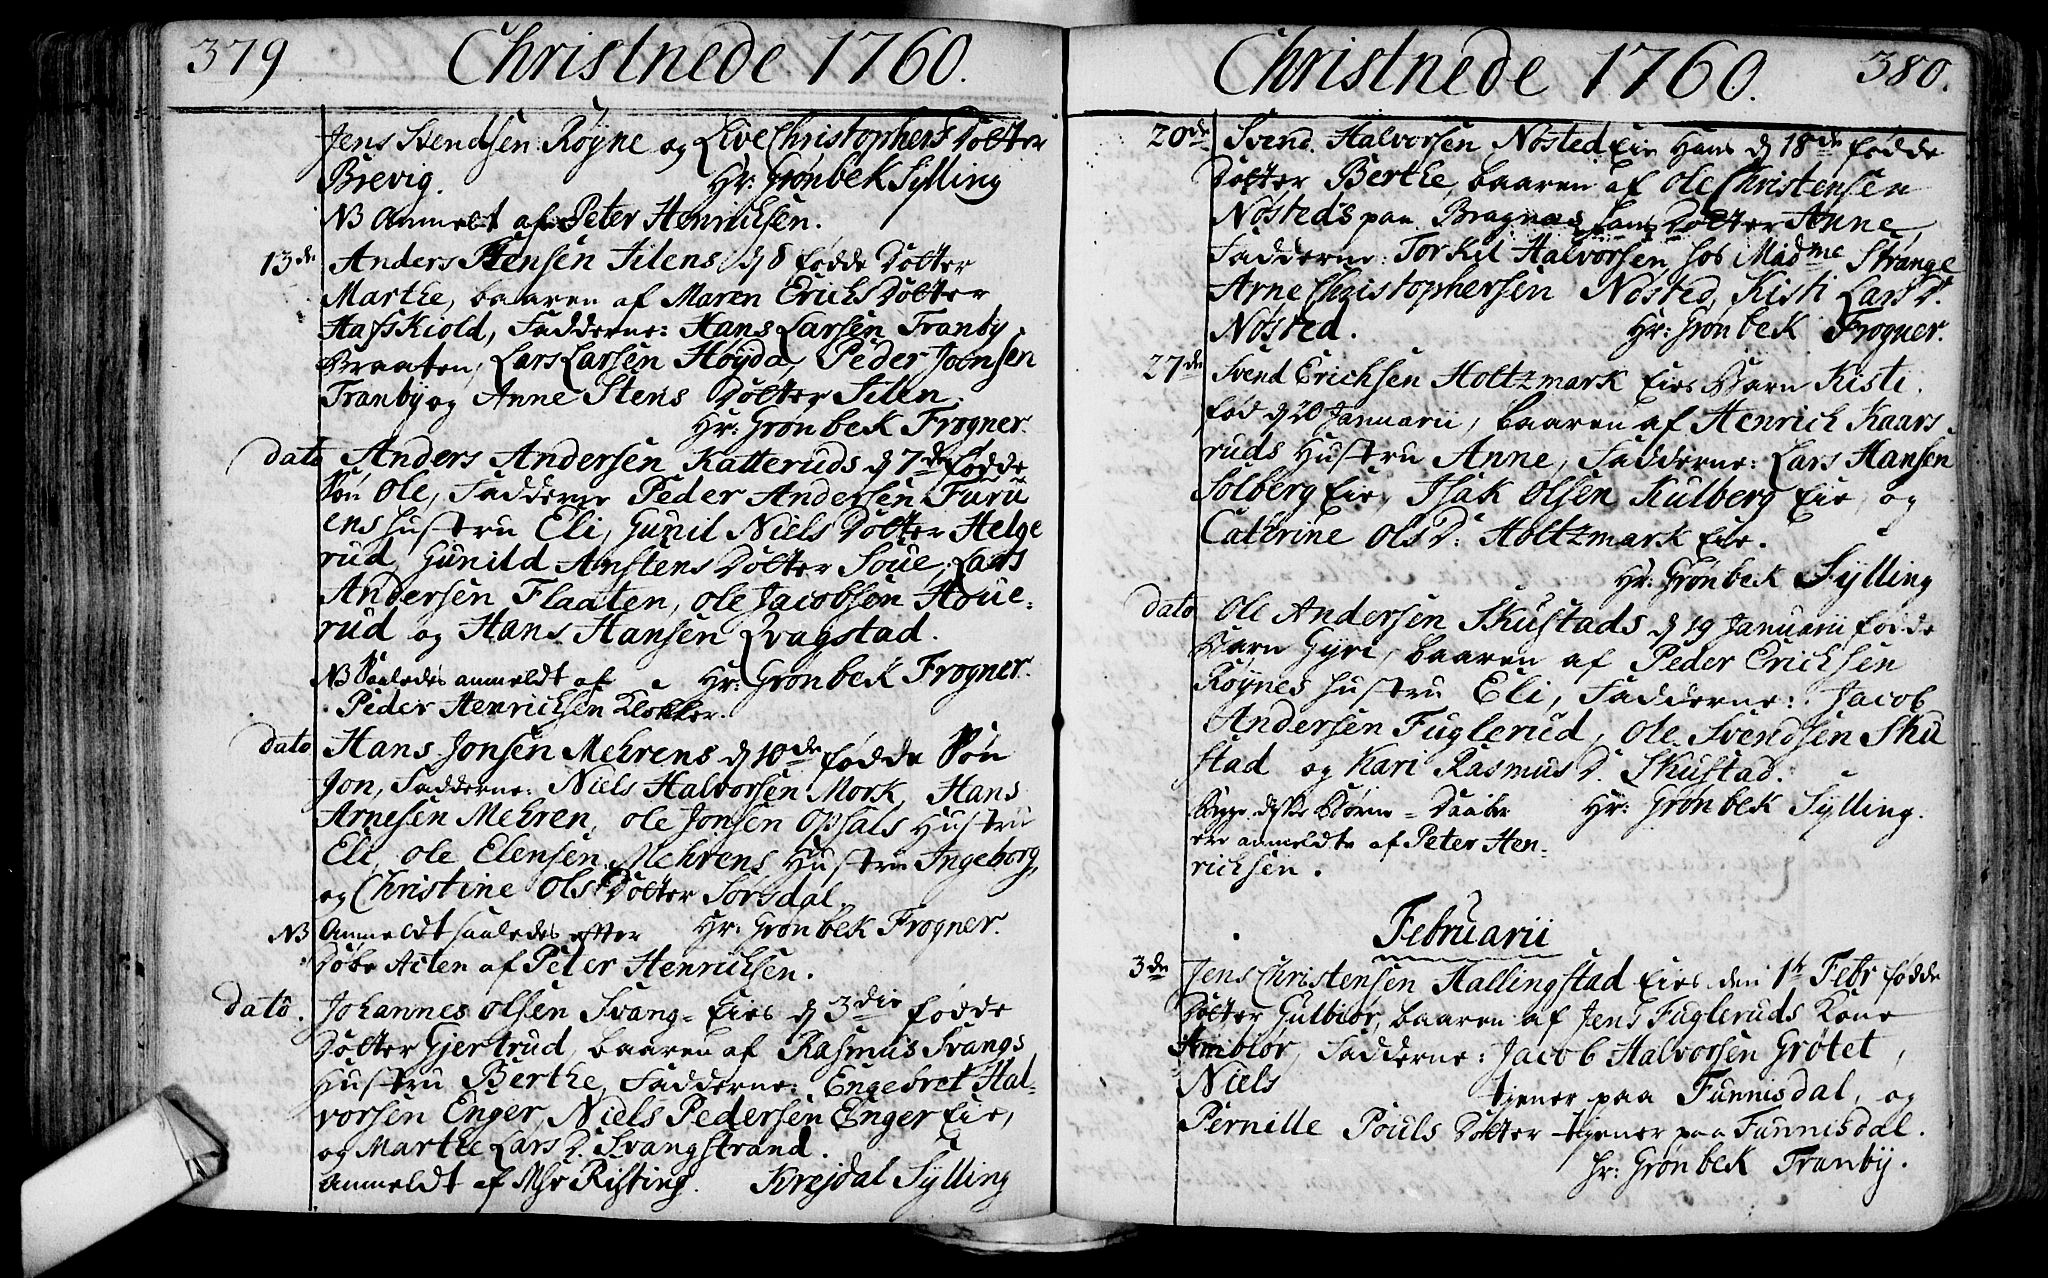 379 Christnede 1760.
Jens Svendsen Røyne og Live Christophers Dotter
Brevig. Hr: Grønbek Sylling
NB Anmelt af Peter Henrichsen.
13de Anders Stensen Silens d 8 fødde Dotter
Marthe, baaren af Maren Erichs Dotter
Hafskiold, Fadderne: Hans Larsen Tranby
Braaten, Lars Larsen Høyda, Peder Joensen
Tranby og Anne Stens Dotter Silen.
Hr: Grønbek Frogner.
dato Anders Andersen Katteruds d 7de fødde
Søn Ole, Fadderne Peder Andersen Furu
ens hustru Eli, Gunil Niels Dotter Helge
rud, Gunild Amstens Dotter Soue, Lars
Andersen Flaaten, Ole Jacobsen Houe-
rud og Hans Hansen Qvagstad.
NB Saaledes anmeldt af Hr: Grønbek Frogner.
Peder Henrichsen Klokker.
dato Hans Jonsen Mehrens d 10de fødde Søn
Jon, Fadderne: Niels Halvorsen Mork, Hans
Arnesen Mehren, Ole Jonsen Opsals Hustru
Eli, Ole Elensen Mehrens Hustru Ingeborg,
og Christine Ols Dotter Sorsdal.
NB Anmeldt saaledes efter Hr: Grønbek Frogner.
Døbe Acten af Peter Henrichsen.
Dato. Johannes Olsen Svang-Eies d 3die fødde
Dotter Gjertrud, baaren af Rasmus Svangs
Hustru Berthe, Fadderne: Engebret Hal-
vorsen Enger, Niels Pedersen Enger Eie,
og Marthe Lars D. Svangstrand.
anmeldt af Msr Risting. Krejdal Sylling
Christnede 1760. 380.
20de Svend Halvorsen Nøsted Eie Hans d 18de fødde
Dotter Berthe, baaren af Ole Christensen
Nøsteds paa Bragnæs hans Dotter Anne,
Fadderne: Torkil Halvorsen hos Madme Strange
Arne Christophersen Nøsted, Kisti Lars D.
Nøsted. Hr: Grønbek Frogner.
27de Svend Erichsen Holtzmark Eies Barn Kisti,
fød d 20 Januarii, baaren af Henrich Kaars
ruds Hustru Anne, Fadderne: Lars Hansen
Solberg Eie, Isak Olsen Kulberg Eie, og
Cathrine Ols D: Holtzmark Eie.
Hr: Grønbek Sylling
Dato Ole Andersen Skustads d 19 Januarii fødde
Barn Gyri, baaren af Peder Erichsen
Røynes hustru Eli, Fadderne: Jacob
Andersen Fuglerud, Ole Svendsen Sku
stad og Kari Rasmus D. Skustad.
Begge disse Børn Hr: Grønbek Sylling.
ere anmeldte af Peter Hen-
richsen.
Februarii
3de Jens Christensen Hallingstad Eies den 1te Febr fødde
Dotter Gulbiør, baaren af Jens Fugleruds Kone
Amblor, Fadderne: Jacob Halvorsen Grøtet,
Niels tjener paa Funnisdal, og
Pernille Pouls Dotter tjener paa Funnisdal.
Hr: Grønbek Tranby.